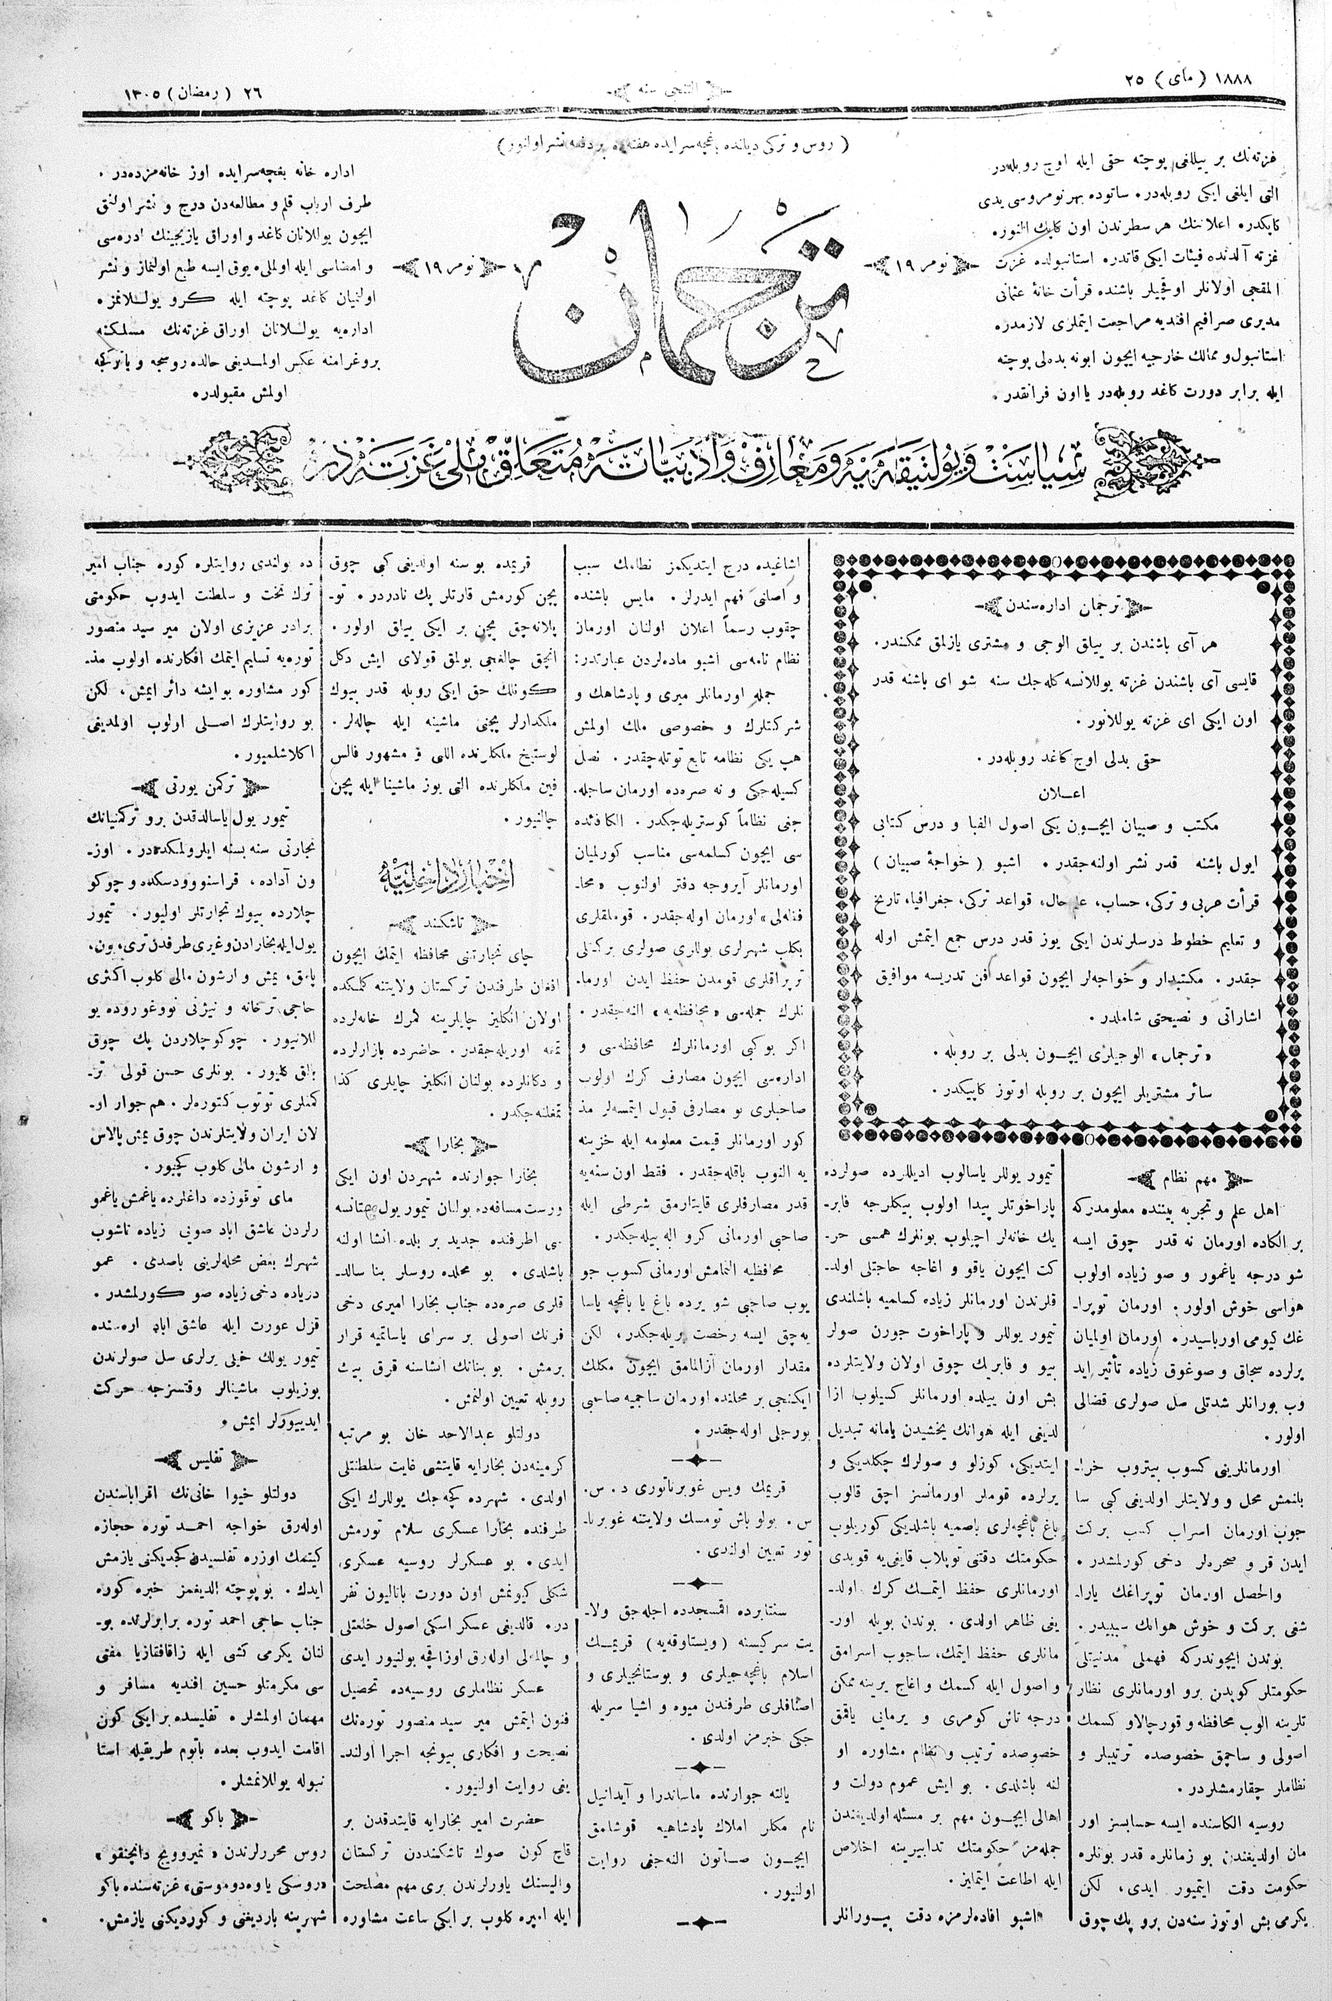 ١٨٨٨ (مای) ٢٥
التنجی سنه
٢٦ (رمضان) ١٣٠٥
(روس و ترکی دیانده باغچه‌سرایده هفته‌ده بر دفعه نشر اولنور)
غزته‌نك بر ییللغی پوچته حقی ایله اوچ روبله‌در
التی ایلغی ایکی روبله‌در. ساتوده بهر نومروسی یدی
کاپکدر. اعلاننك هر سطرندن اون کاپك النور.
غزته آلدنده فیئات ایکی قاتدر. استانبولده غزت
المقجی اولانلر اوقجیلر باشنده قرأت خانۀ عثمانی
مدیری صرافیم افندیه مراجعت ایتملری لازمدر.
استانبول و ممالك خارجیه ایچون ابونه بدلی پوچته
ایله برابر دورت کاغد روبله‌در یا اون فرانقدر.
نومر ١٩
ترجمان
نومر ١٩
اداره خانه بغچه‌سرایده اوز خانه‌مزده‌در.
طرف ارباب قلم و مطالعه‌دن درج و نشر اولنمق
ایچون یوللانان کاغد و اوراق یازیجینك ادره‌سی
و امضاسی ایله اولملی. یوق ایسه طبع اولنماز و نشر
اولنمیان کاغد پوچته ایله کرو یوللانمزه
اداره‌یه یوللانان اوراق غزته‌نك مسلکنه
پروغرامنه عکس اولمدیغی حالده روسجه و یا ترکجه
اولمش مقبولدر.
سیاست و پولیتیقه‌یه و معارف و ادبیاته متعلق ملی غزته‌در
ترجمان اداره‌سندن
هر آی باشندن بر ییلق الوجی و مشتری یازلمق ممکندر.
قایسی آی باشندن غزته یوللانسه کله‌جك سنه شو ای باشنه قدر
اون ایکی ای غزته یوللانور.
حقی بدلی اوچ کاغد روبله‌در.
اعلان
مکتب و صبیان ایچون یکی اصول الفبا و درس کتابی
ایول باشنه قدر نشر اولنه‌جقدر. اشبو (خواجۀ صبیان)
قرأت عربی و ترکی، حساب، علم حال، قواعد ترکی، جغرافیا، تاریخ
و تعلیم خطوط درسلرندن ایکی یوز قدر درس جمع ایتمش اوله
جقدر. مکتبدار و خواجه‌لر ایچون قواعد فن تدریسه موافیق
اشاراتی و نصیحتی شاملدر.
«ترجمان» الوجیلری ایچون بدلی بر روبله.
سائر مشتریلر ایچون بر روبله اوتوز کاپیکدر.
مهم نظام
اهل علم و تجربه بیننده معلومدرکه
بر الکاده اورمان نه قدر چوق ایسه
شو درجه یاغمور و صو زیاده اولوب
هواسی خوش اولور. اورمان توپرا-
غك کیومی اورباسیدر. اورمان اولمیان
یرلرده سجاق و صوغوق زیاده تأثیر اید
وب بورانلر شدتلی سل صولری قضالی
اولور.
اورمانلرینی کسوب بیتروب خرا-
بانمش محل و ولایتلر اولدیغی کبی سا
جوب اورمان اسراب کسب برکت
ایدن قر و صحرەلر دخی کورلمشدر.
والحصل اورمان توپراغك یارا-
شغی برکت و خوش هوانك سببیدر.
بوندن ایچوندرکه فهملی مدنیتلی
حکومتلر کوپدن برو اورمانلری نظار
تلرینه الوب محافظه و قورچالاو کسمك
اصولی و ساجمق خصوصده ترتیبلر و
نظاملر چقارمشلردر.
روسیه الکاسنده ایسه حسابسز اور
مان اولدیغندن بو زمانلره قدر بونلره
حکومت دقت ایتمیور ایدی، لکن
یکرمی بش اوتوز سنه‌دن برو پك چوق
تیمور یوللر یاسالوب ادیللرده صولرده
پاراخوتلر پیدا اولوب بیکلرجه فابر-
یك خانه‌لر اچیلوب بونلرك همسی حر-
کت ایچون یاقو و اغاجه حاجتلی اولد-
قلرندن اورمانلر زیاده کسامیه باشلندی
تیمور یوللر و پاراخوت جورن صولر
بیو و فابریك چوق اولان ولایتلرده
بش اون ییلده اورمانلر کسیلوب ازا
لدیغی ایله هوانك یخشیدن یامانه تبدیل
ایتدیکی، کوزلو و صولرك چکلدیکی و
یرلرده قوملر اورمانسز اچق قالوب
باغ باغچه‌لری باصمیه باشلدیکی کوریلوب
حکومتك دقتی توپلاب قایغی‌یه قویدی
اورمانلری حفظ ایتمك کرك اولد-
یغی ظاهر اولدی. بوندن بویله اور-
مانلری حفظ ایتمك، ساجوب اسرامق
و اصول ایله کسمك و اغاج یرینه ممکن
درجه تاش کومری و یرمانی یاقمق
خصوصده ترتیب و نظام مشاوره او
لنه باشلدی. بو ایش عموم دولت و
اهالی ایچون مهم بر مسئله اولدیغندن
جمله‌مز حکومتك تدابیرینه اخلاص
ایله اطاعت ایتمایز.
اشبو افاده‌لرمزه دقت یورانلر
اشاغیده درج ایتدیکمز نظامك سبب
و اصلنی فهم ایدرلر. مایس باشنده
چقوب رسماً اعلان اولنان اورمان
نظام نامه‌سی اشبو ماده‌لردن عبارتدر:
جمله اورمانلر میری و پادشاهك و
شرکتلرك و خصوصی ملك اولمش
هپ یکی نظامه تابع توتله‌چقدر. نصل
کسیله‌جکی و نه صره‌ده اورمان ساجله-
جغی نظاماً کوستریله‌جکدر. الکافئده
سی ایچون کسلمه‌سی مناسب کورلمیان
اورمانلر آیروجه دفتر اولنوب «محا-
فظه‌لی» اورمان اوله‌جقدر. قوملقلری
یکلب شهرلری یوللری صولری برکتلی
تپراقلری قومدن حفظ ایدن اورما-
نلرك جمله‌سی «محافظه‌یه» النه‌جقدر.
اکر بوکبی اورمانلرك محافظه‌سی و
اداره‌سی ایچون مصارف کرك اولوب
صاحبلری بو مصارفی قبول ایتمسه‌لر مذ
کور اورمانلر قیمت معلومه ایله خزینه
یه النوب باقله‌جقدر. فقط اون سنه‌یه
قدر مصارفلری قایتارمق شرطی ایله
صاحبی اورمانی کرو اله بیله‌جکدر.
محافظیه النمامش اورمانی کسوب جو
یوب صاحبی شو یرده باغ یا باغچه یاسا
یه‌چق ایسه رخصت یریله‌جکدر، لکن
مقدار اورمان آزالمامق ایچون مکلك
ایکنجی بر محلنده اورمان ساجمیه صاحبی
بورجلی اوله‌جقدر.
قریمك ویس غوبرناتوری د. س.
س. بولوباش تومسك ولایتنه غوبرنا-
تور تعیین اولندی.
سنتابرده اقمسجدده اجله‌جق ولا-
یت سرکیسنه (ویستاوقه‌یه) قریمك
اسلام باغچه‌جیلری و بوستانجیلری و
اصنافلری طرفندن میوه و اشیا سریله
جکی خبرمز اولدی.
یالته جوارنده ماساندرا و آیدانیل
نام مکلر املاك پادشاهیه قوشلمق
ایچون صاتون النه‌جغی روایت
اولنیور.
قریمده بو سنه اولدیغی کبی چوق
پچن کورمش قارتلر پك نادردر. تو-
پلانه‌چق پچن بر ایکی ییلق اولور.
انجق چالغجی بولمق قولای ایش دکل
کونلك حق ایکی روبله قدر بیوك
ملکدارلر پچنی ماشینه ایله چاله‌لر.
لوستیخ ملکلرنده اللی و مشهور فالس
فین ملکلرنده التی یوز ماشینا ایله پچن
چالنیور.
اخبار داخلیه
تاشکند
چای تجارتنی محافظه ایتمك ایچون
افغان طرفندن ترکستان ولایتنه کلمکده
اولان انکلیز چایلرینه گمرك خانه‌لرده
تمغه اوریله‌جقدر. حاضرده بازارلرده
و دکانلرده بولنان انکلیز چایلری کذا
تمغلنه‌جکدر.
بخارا
بخارا جوارنده شهردن اون ایکی
ورست مسافه‌ده بولنان تیمور یول ستانسه
سی اطرفنده جدید بر بلده انشا اولنه
باشلدی. بو محلده روسلر بنا سالد-
قلری صره‌ده جناب بخارا امیری دخی
فرنك اصولی بر سرای یاسامیه قرار
برمش. بو بنانك انشاسنه قرق بیك
روبله تعیین اولنمش.
دولتلو عبدالاحد خان بو مرتبه
کرمینه‌دن بخارایه قایتشی غایت سلطنتلی
اولدی. شهرده کچه‌جك یوللرك ایکی
طرفنده بخارا عسکری سلام تورمش
ایدی. بو عسکرلر روسیه عسکری،
شکلی کیونمش اون دورت باتالیون نفر
در. قالدیغی عسکر اسکی اصول خلعتلی
و چالمه‌لی اوله‌رق اوزاقچه بولنیور ایدی
عسکر نظاملری روسیه‌ده تحصیل
فنون ایتمش میر سید منصور توره‌نك
نصیحت و افکاری بیونجه اجرا اولند-
یغی روایت اولنیور.
حضرت امیر بخارایه قایتدقدن بر
قاچ کون صوك تاشکنددن ترکستان
والیسنك یاورلرندن بری مهم مصلحت
ایله امیره کلوب بر ایکی ساعت مشاوره
ده بولندی روایتلره کوره جناب امیر
ترك تخت و سلطنت ایدوب حکومتی
برادر عزیزی اولان میر سید منصور
توره‌یه تسلیم ایتمك افکارنده اولوب مذ-
کور مشاوره بو ایشه دائر ایمش، لکن
بو روایتلرك اصلی اولوب اولمدیغی
اکلاشلمیور.
ترکمن یورتی
تیمور یول یاسالدقدن برو ترکمنیانك
تجارتی سنه بسنه ایلرولمکده‌در. اوز-
ون آداده، قراسنووودسکده و چوکو
چلارده بیوك تجارتلر اولیور. تیمور
یول ایله بخارادن و غیری طرفدن تری، یون،
پامق، یمش و ارشون مالی کلوب اکثری
حاجی ترخانه و نیژنی نووغوروده یو
للانیور. چوکوچلاردن پك چوق
بالق کلیور. بونلری حسن قولی تر-
کمنلری توتوب کتوره‌لر. هم جوار او-
لان ایران ولایتلرندن چوق یمش پالاس
و ارشون مالی کلوب کچیور.
مای توقوزده داغلرده یاغمش یاغمو
رلردن عاشق اباد صوینی زیاده تاشوب
شهرك بعض محله‌لرینی باصدی. عمو
دریاده دخی زیاده صو کورلمشدر.
قزل عورت ایله عاشق اباد اره‌سنده
تیمور یولك خیلی یرلری سل صولرندن
بوزیلوب ماشینالر وقتسزجه حرکت
ایدییورلر ایمش.
تفلیس
دولتلو خیوا خانی‌نك اقراباسندن
اوله‌رق خواجه احمد توره حجازه
کیتمك اوزره تفلیسدن کچدیکنی یازمش
ایدك. بو پوچته الدیغمز خبره کوره
جناب حاجی احمد توره برابرلرنده بو-
لنان یکرمی کشی ایله زاقافقازیا مفتی
سی مکرمتلو حسین افندیه مسافر و
مهمان اولمشلر. تفلیسده بر ایکی کون
اقامت ایدوب بعده باتوم طریقیله استا
نبوله یوللانمشلر.
باکو
روس محررلرندن «نمیروویچ دانچنقو»
«روسکی یا وەدوموستی» غزته‌سنده باکو
شهرینه باردیغنی و کوردیکنی یازمش.